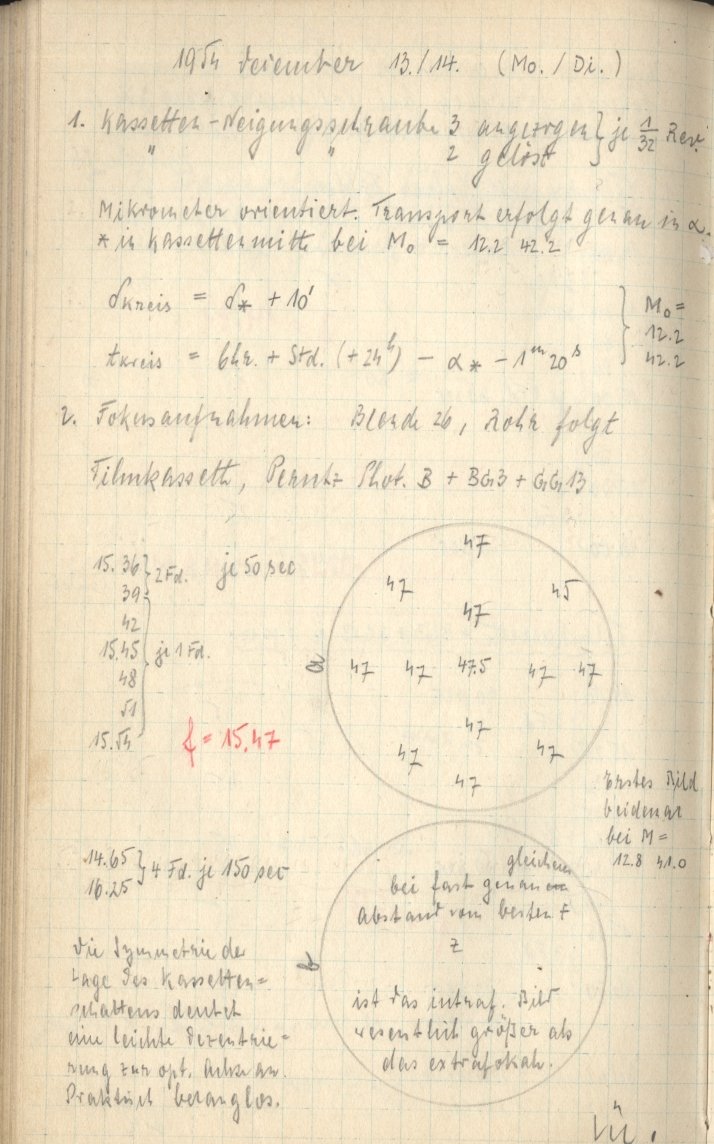 1954 Dezember 13./14. (Mo. / Di.)
1. Kassetten-Neigungsschraube 3 angezogen } je 1/32 Rev.
" " 2 gelöst
Mikrometer orientiert. Transport erfolgt genau in α.
* in Kassettenmitte bei M₀ = 12.2 42.2
δkreis = δ* + 10'
tkreis = Chr. + Std. (+24h) − α* − 1m 20s
} M₀ =
12.2
42.2
2. Fokusaufnahmen: Blende 26, Rohr folgt
Filmkassette, Perutz Phot. B + BG3 + GG13
15.36 } 2 Fd. je 50 sec
39
42
15.45 } je 1 Fd.
48
51
15.54
f = 15.47
a
47
47 45
47
47 47 47.5 47 47
47
47 47
47
Erstes Bild
beidemal
bei M =
12.8 41.0
14.65 } 4 Fd. je 150 sec
16.25
b
gleichem
bei fast genau
Abstand vom besten F
z
ist das intraf. Bild
wesentlich größer als
das extrafokale.
Die Symmetrie der
Lage des Kassetten=
schattens deutet
eine leichte Dezentrie=
rung zur opt. Achse an.
Praktisch belanglos.